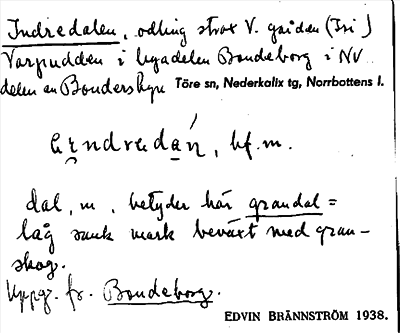 Indredalen, odling strax V. gården (Isi)
Varpudden i byadelen Bondeborg i NV
delen av Bondersbyn Töre sn, Nederkalix tg, Norrbottens l.
bf. m.
dal, m, betyder här grandal =
låg sank mark beväxt med gran-
skog.
Uppg. fr. Bondeborg.
EDVIN BRÄNNSTRÖM 1938.